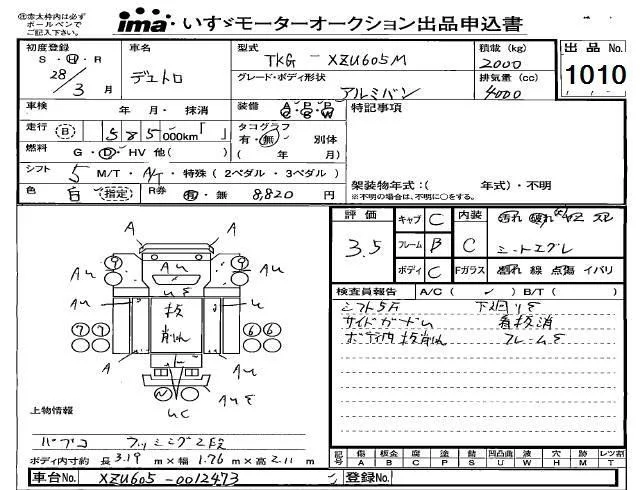 ㊟赤太枠内は必ず
ボールペンで
ご記入下さい。
ima いすゞモーターオークション出品申込書
初度登録 車名 型式 積載 (kg) 出品 No.
S・H・R デュトロ TKG - XZU605M 2000 1010
28/3月 グレード・ボディ形状 排気量 (cc)
アルミバン 4000
車検 年 月・抹消 装備 A・P・P C・S・W 特記事項
走行 (B) 585000km「 」 タコグラフ 有・無 別体
燃料 G・D・HV 他( ) ( 年 月)
シフト 5 M/T・A/T・特殊(2ペダル・3ペダル) 架装物年式:( 年式)・不明
色 白 指定 R券 有・無 8,820円 ※不明の場合は、不明に○をする。
評価 キャブ C 内装 汚れ
3.5 フレーム B C シートエグレ
ボディ C Fガラス 線 点傷 イバリ
検査員報告 A/C( ✓ ) B/T( )
シフト5斤 下廻りE
サイドガード凹 看板消
ボディ内 抜削れ フレームE
A A
9 Au 9
Au Au Au
uE
抜
u u
7 7 削れ 6 6
A A Au
N
uC AuE
上物情報
パブコ ラッシング2段
ボディ内寸約 長3.19m×幅1.76m×高2.11m
記号 傷 A 板金 B 腐 C 塗 P 錆 S 凹凸曲 U 波 W 穴 H 跡 M レツ割 T
車台No. XZU605-0012473 登録No.